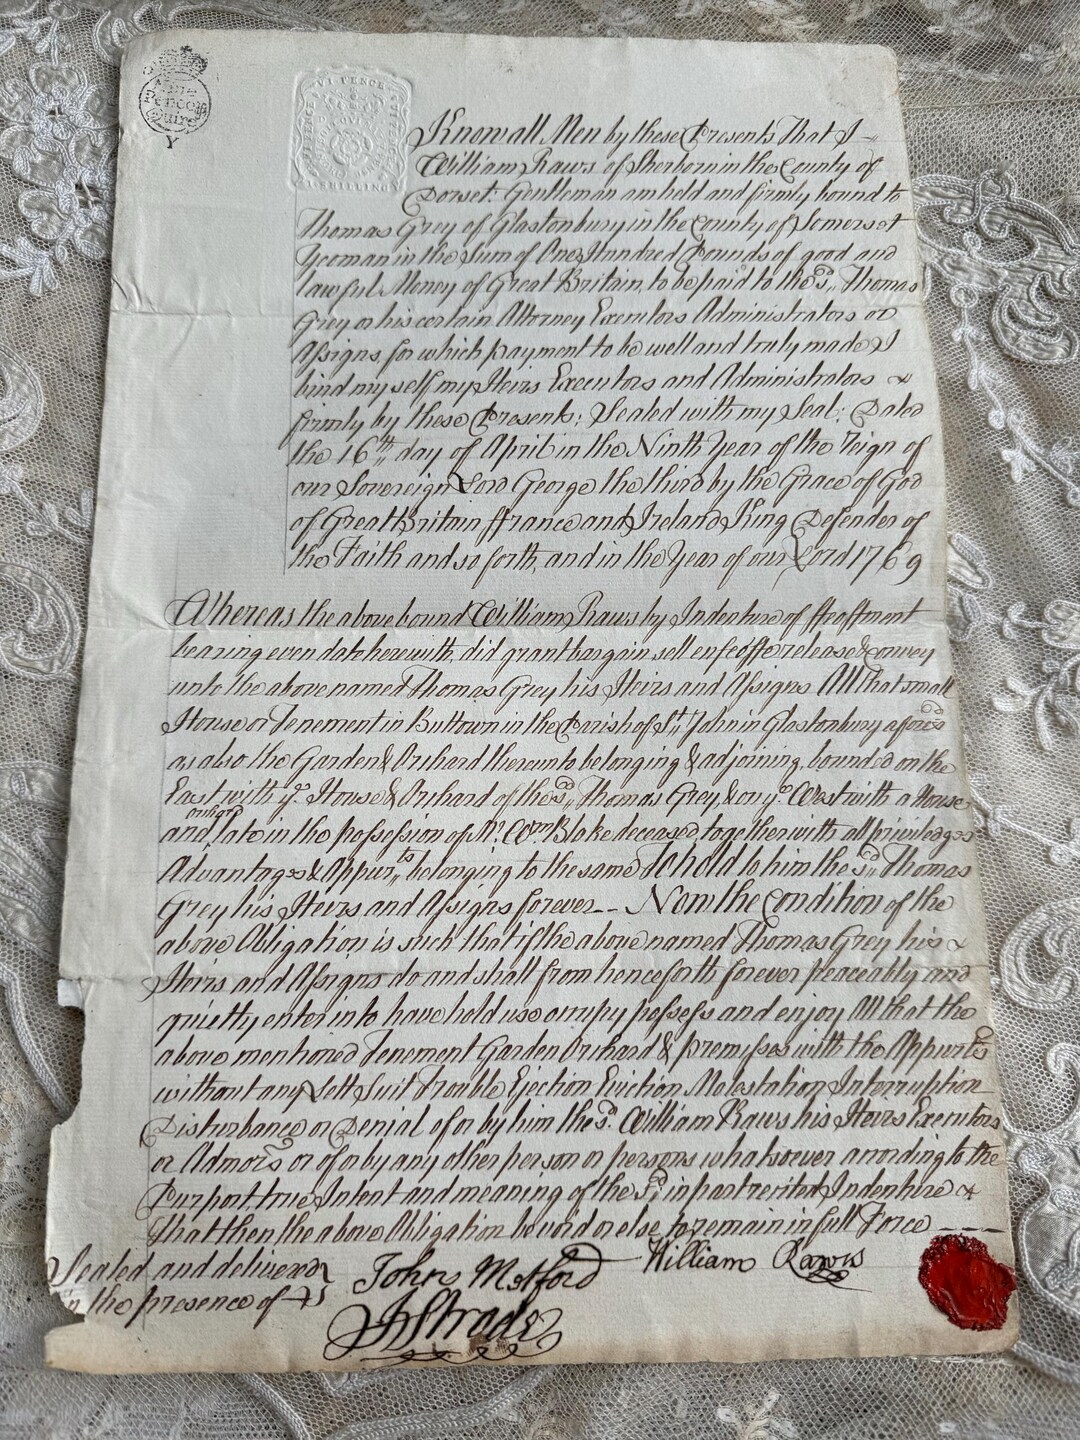 VI PENCE
II SHILLINGS
Know all Men by these Presents That I
William Raws of Sherborn in the County of
Dorset Gentleman am held and firmly bound to
Thomas Grey of Glastonbury in the County of Somerset
Yeoman in the Sum of One Hundred Pounds of good and
lawful Money of Great Britain, to be paid to the sd. Thomas
Grey or his certain Attorney Executors Administrators or
Assigns, for which payment to be well and truly made I
bind my self my Heirs Executors and Administrators &
firmly by these Presents; Sealed with my Seal; Dated
the 16th day of April in the Ninth Year of the Reign of
our Sovereign Lord George the third by the Grace of God
of Great Britain ffrance and Ireland King Defender of
the Faith and so forth, and in the Year of our Lord 1769
Whereas the above bound William Raws by Indenture of ffeoffment
bearing even date herewith, did grant bargain sell enfeoffe release & convey
unto the above named Thomas Grey his Heirs and Assigns All that small
House or Tenement in Buttown in the Parish of St. John in Glastonbury aforesd
as also the Garden & Orchard thereunto belonging & adjoining, bounded on the
East with ye. House & Orchard of the sd. Thomas Grey & on ye. West with a House
and orchard late in the possession of Mr. Wm. Blake deceased together with all priviledges
Advantages & Appurts. belonging to the same To hold to him the sd. Thomas
Grey his Heirs and Assigns forever -- Now the Condition of the
above Obligation is such that if the above named Thomas Grey his &
Heirs and Assigns do and shall from henceforth forever peaceably and
quietly enter into have hold use occupy possess and enjoy All that the
above mentioned Tenement Garden Orchard & premisses with the Appurts
without any Lett Suit Trouble Ejection Eviction Molestation Interruption
Disturbance or Denial of or by him the sd. William Raws his Heirs Executors
or Admors or of or by any other person or persons whatsoever according to the
Purport, true Intent and meaning of the sd. in part recited Indenture &
That then the above Obligation be void or else to remain in full Force ----
Sealed and delivered
in the presence of
John Metford
William Raws
Strode